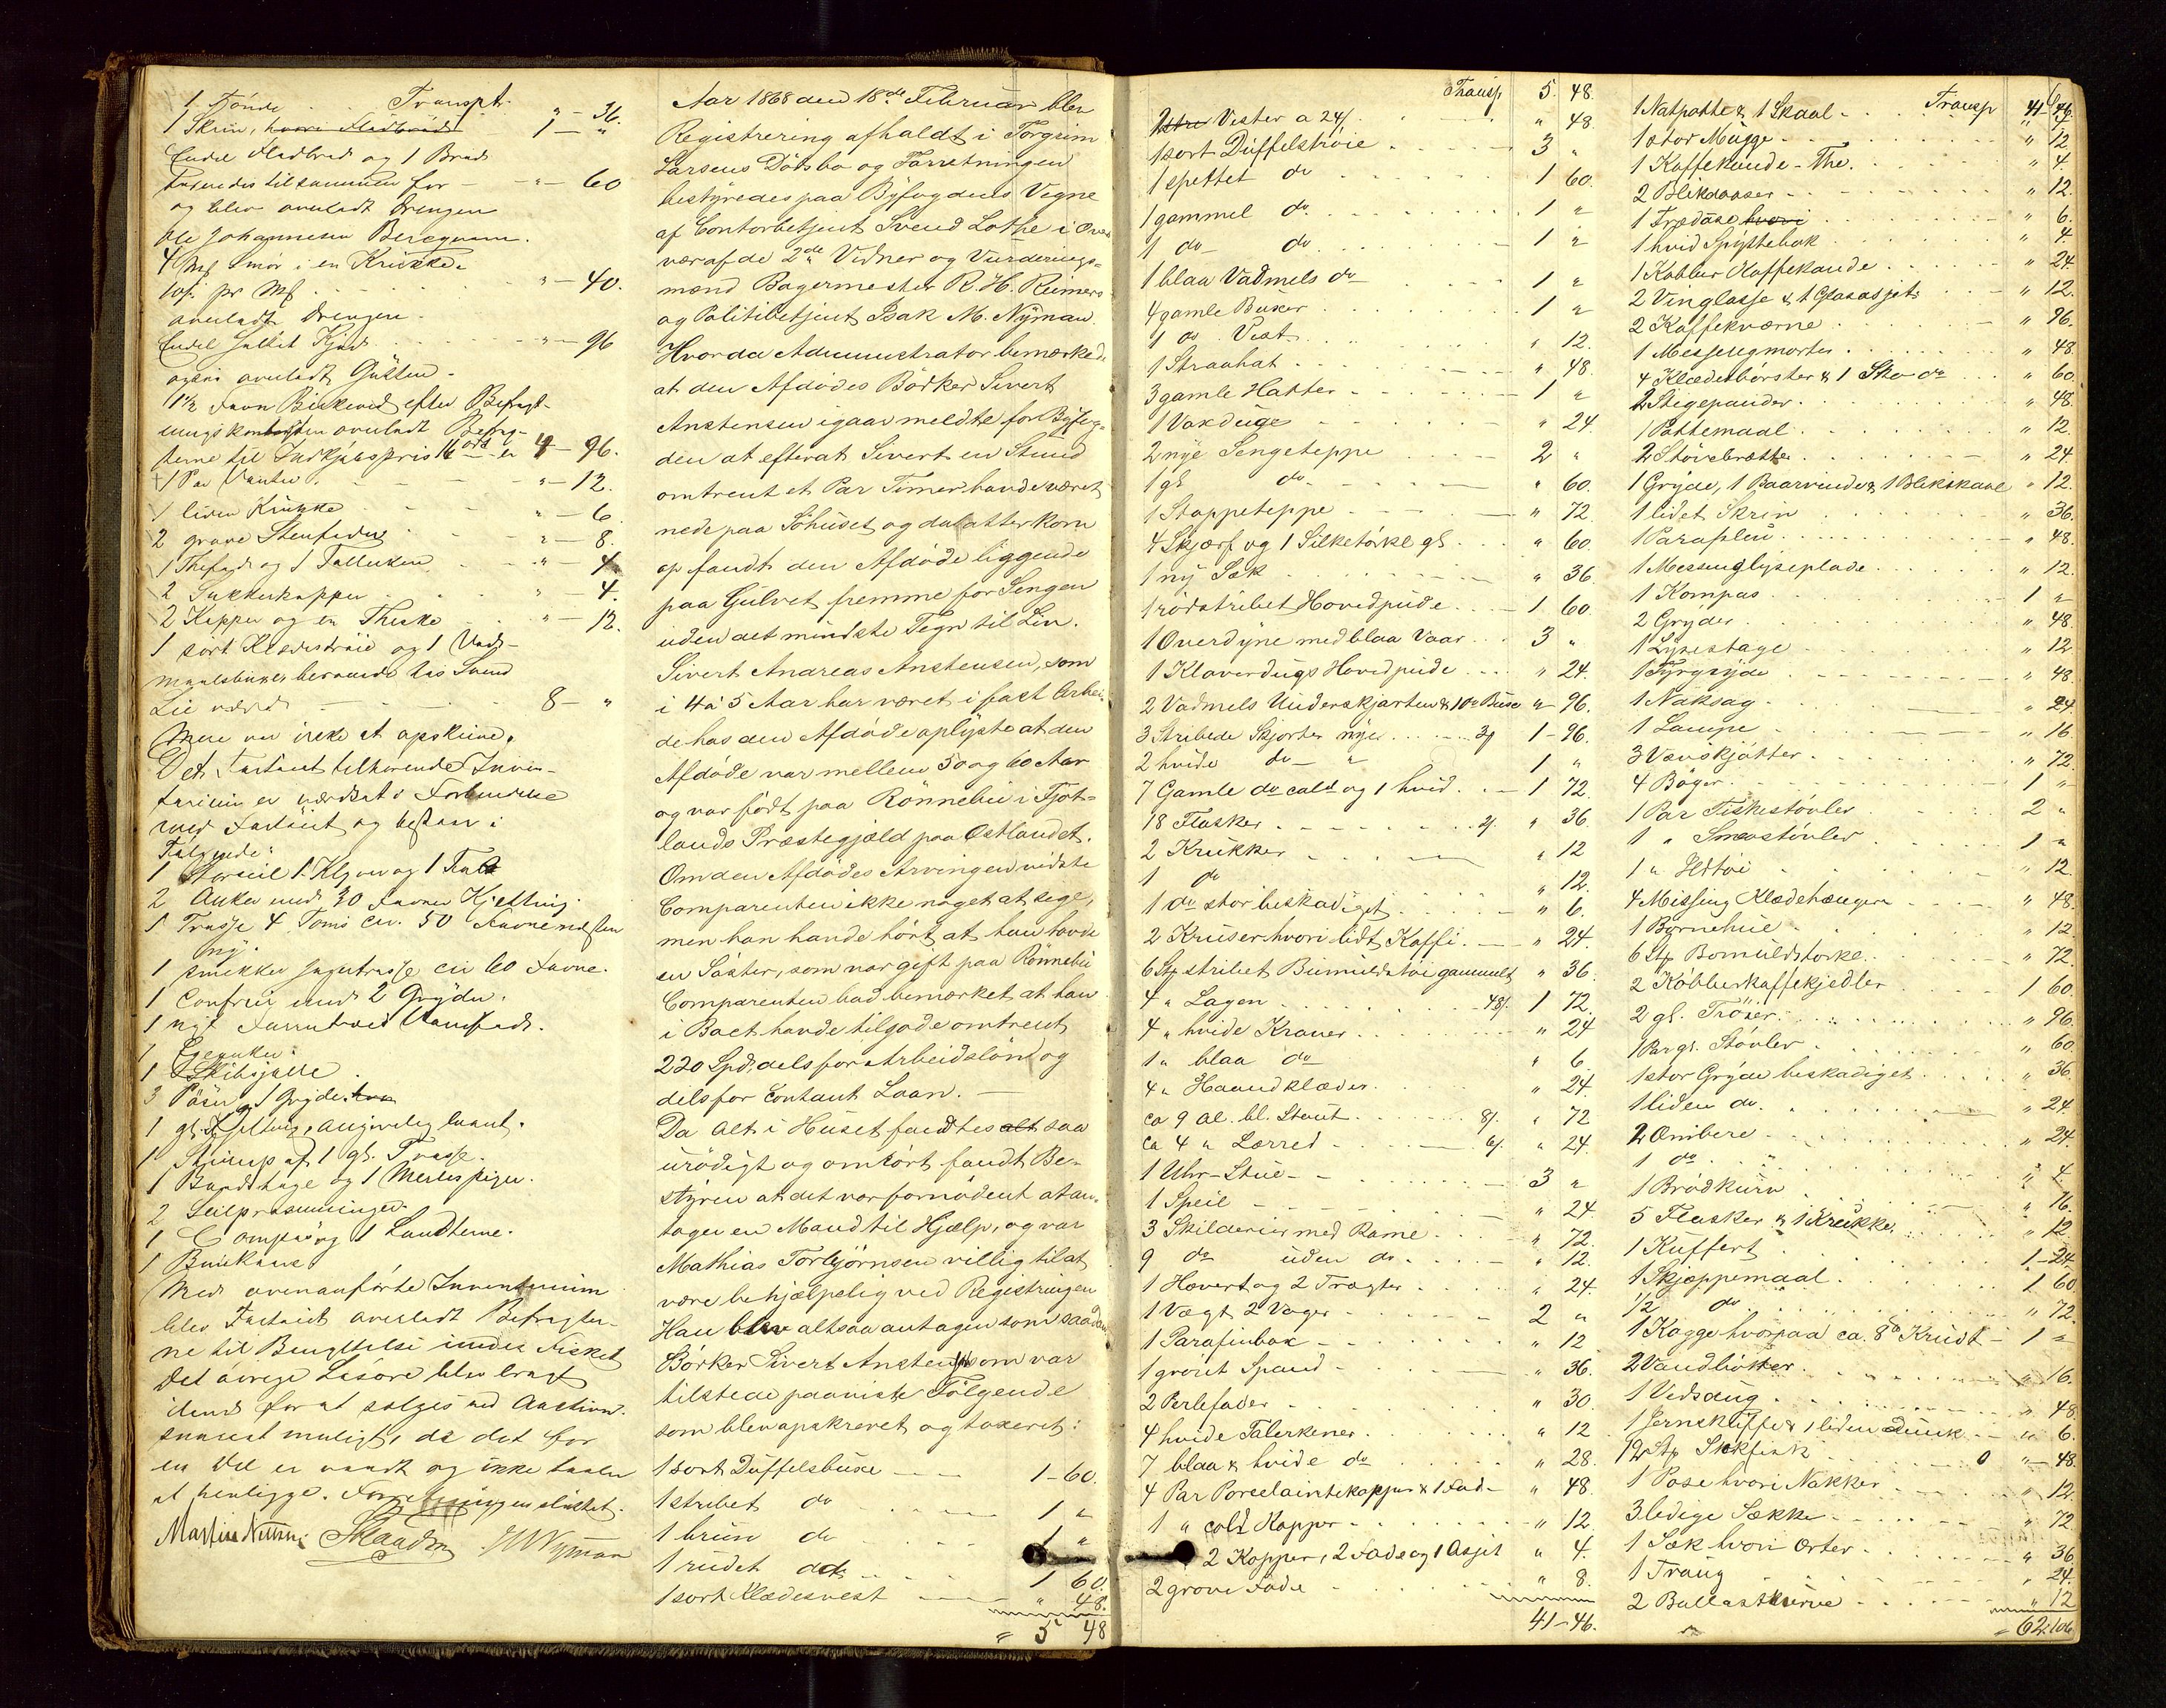 1 Tönde . . Transpt. " - 36.
1 Skrin, hvori Fladbröd 1 - "
Endel Fladbröd og 1 Bröd
tilsammen for - " - 60
og blev overladt Drengen
Ole Johannesen
4 Mk Smör i en Krukke
10/. pr Mk . . . " - 40.
overladt Drengen.
Endel saltet Kjöd . . . " - 96
overladt
1 1/2 Favn Birkeved efter Befragt-
overladt Befrag-
terne til Indkjöbspris 16 ort er 4 - 96.
1 Par Vanter . - - " - 12.
1 liden Krukke - - " - 6.
2 grove Stenfade . . " - 8.
1 Thefad og 1 Tallerken - " - 4
2 Sukkerkopper . . " - 4.
2 Kopper og en Theske " - 12.
1 sort Klædeströie og 1 Vad-
melsbuxer beroende hos Svend
Lie værd - - - 8 - "
Mere var ikke at opskrive.
Det Fartöiet tilhörende Inven-
tarium er værdsat i Forbindelse
med Fartöiet og bestaar i
Fölgende:
1 Storseil 1 Klyver og 1 Fok
2 Anker med 30 Favner Kjetting.
1 Trosse 4 Toms cir. 50 Favne næsten
ny.
1 smækker Jagertrosse cir 60 Favne.
1 Comfeur med 2 Gryder.
1 nyt Vandfad.
1
1 Skibsjolle .
3 Pöser 1 Gryde
1 gl. Kjetting, angivelig laant.
1 Stump af 1 gl. Trosse.
1 Baadshage og 1 Merlespiger.
2 Seilpresenninger.
1 Compas og 1 Landterne.
1
Med ovenanförte Inventarium
blev Fartöiet overladt Befragter-
ne til Benyttelse under Fisket
Det övrige Lösöre blev bragt
iland for at sælges ved Auction
snarest muligt, da det for
en Del er vaadt og ikke taaler
at henligge. Forretningen sluttet.
Martin Nilsen. IMNyman
Aar 1868 den 18de Februar blev
Registrering afholdt i Torgrim
Larsens Dödsbo og Forretningen
bestyredes paa Byfogdens Vegne
af Contorbetjent Svend Lothe i Over
vær af de 2de Vidner og Vurderings-
mænd Bagermester R. H. Reimers
og Politibetjent Isak M. Nyman.
Hvorda Administrator bemærkede
at den Afdödes Bödker Sivert
Anstensen igaar meldte for Byfog-
den at efterat Sivert en Stund
omtrent et Par Timer havde været
nede paa Söhuset og da atter kom
op fandt den Afdöde liggende
paa Gulvet fremme for Sengen
uden det mindste Tegn til Liv.
Sivert Andreas Anstensen, som
i 4 à 5 Aar har været i fast Arbei-
de hos den Afdöde oplyste at den
Afdöde var mellem 50 og 60 Aar
og var födt paa Rönnebu i Fjot-
lands Præstegjæld paa Östlandet.
Om den Afdödes Arvinger vidste
Comparenten ikke noget at sige,
men han havde hört at han havde
en Söster, som var gift paa Rönnebu
Comparenten bad bemærket at han
i Boet havde tilgode omtrent
220 Spd. dels for Arbeidslön og
dels for Contant Laan. -
Da Alt i Huset fandtes alt saa
urödigt og omrört fandt Be-
styren at det var fornödent at an-
tages en Mand til Hjælp, og var
Mathias Torbjörnsen villig til at
være behjælpelig ved Registringen
Han blev altsaa antagen som saadan
Bödker Sivert Anstensen som var
tilstede paaviste Fölgende
som blev opskrevet og taxeret:
1 sort Düffelsbuxe - - 1 - 60.
1 stribet do - - 1 "
1 brun do . . . 1 "
1 rudet do . . . 1 60
1 sort Klædesvest - - " 48.
= 5 48
Transp 5. 48.
2 Vester a 24/. . . - " 48.
1 sort Düffelströie . . - 3 "
1 spettet do . . . 1 60.
1 gammel do . . . 1 "
1 do - do . . . 1 "
1 blaa Vadmels do - . . 1 "
4 gamle Buxer . . . 1 "
1 do Vest . . . " 12.
1 Straahat . . . " 48.
3 gamle Hatter - . . 1 "
1 Voxduge - - - " 24.
2 nye Sengetepper - - 2 "
1 gl do. - - " 60.
1 Stoppeteppe - - - " 72.
4 Skjærf og 1 Silketörklæ gl . . " 60.
1 ny Sæk . . . " 36.
1 rödstribet Hovedpude . . - 1 60.
1 Overdyne med blaa Vaar . . 3 "
1 Klaverdugs Hovedpude . . . " 24.
2 Vadmels Underskjorter & 1 do Buxe " - 96.
3 Stribede Skjorter nye . . . 1 - 96.
2 hvide do - " 1 "
7 Gamle do cold og 1 hvid . - 1 72.
18 Flasker . - - 2/. " 36.
2 Krukker - . . " 12
1 do . . . " 12.
1 do stor beskadiget . . . " 6.
2 Kruser hvori lidt Kaffe . - " 24.
6 Stk stribet Bumuldstöi gammelt " 36.
4 " Lagen . . . 48/. 1 72.
4 " hvide Kraver . . . " 24
1 " blaa do - " 6
4 " Haandklæder . . . " 24.
ca 9 al. bl. Stout . . . 8/. " 72
ca 4 " Lærred - . . 6/. " 24.
1 Uhr-Stue - - 3 "
1 Speil - - - " 24
3 Skilderier med Rame . . . " 72.
9 do uden do . . . " 12.
1 Hævert og 2 Tragter . . " 24.
1 Vægt, 2 Vager - - 2 "
1 Parafinbox - - " 12
1 grönt Spand - - " 36.
2 Perlefader . - - " 30.
4 hvide Talerkener . . . " 12
7 blaa & hvide do . . . " 28.
4 Par Porcelaintekopper & 1 Fad - " 48.
1 " cold Kopper - - " 12.
2 Kopper, 2 Fade og 1 Asjet " 4.
2 grove Fade - . . " 8.
41 - 46.
Transp 41 46.
1 Natpotte & 1 Skaal - . . " 12.
1 stor Mugge - . . " 12
1 Kaffekande - The . . . " 4.
2 Blikdaaser - - " 12.
1 hvori . . . " 6.
1 hvid Spyttebak . . . " 4.
1 Kobber Kaffekande . . . " 24.
2 Vinglasse & 1 Glasasjet . " 12.
2 Kaffekværne . . . " 96.
1 Messingmorter . . . " 48.
4 Klædesbörster & 1 Sko do . . " 60.
2 Stegepander . . . " 48.
1 Pottemaal . . . " 12.
2 . . . " 24.
1 Gryde, 1 & 1 Blikskaal " 12.
1 lidet Skrin . . . " 36.
1 Paraplui . . . " 48.
1 Messinglyseplade . . . " 12.
1 Kompas . . . 1 "
2 Gryder . . . " 48
1 Lysestage . . . " 12
1 Fyrgryde . . . " 48.
1 Naksag . . . " 24
1 Lampe . . . " 16.
3 . . . " 72.
4 Böger . . . 1 "
1 Par Fiskestövler . . 2 "
1 " Smaastövler . . 1 "
1 " Ildtöi . . " 12.
4 Missing Klædehængere . . " 48.
1 Björnehue . . " 12.
6 Stk Bomuldstörklæ . . " 72.
2 Kobberkaffekjedler . . 1 60.
2 gl. Tröier . . . " 96.
1 Par gl. Stövler . . . " 60.
1 stor Gryde beskadiget . . . " 36.
1 liden do. . . . " 24
2 Ömbere . . . " 24.
1 do . . . " 4
1 Brödkurv . . . " 16.
5 Flasker & 1 Krukke . . . " 12
1 Kuffert . . . 1 - 24
1 Skjæppemaal . . . 1 60.
1/2 do . . . " 72.
1 Kagge hvorpaa ca. 8 Krudt - 1 "
2 Vandbötter . . . " 16.
1 Vedsaug . . . " 48.
1 & 1 liden Dunk - " 6.
12 Stk . . . " - 48.
1 Pose hvori Nakker . . . " 12.
3 ledige Sække . . . " 72
1 Sæk hvori Erter . . . " 36
1 Traug . . . " 24.
2 Ballastkurve . . . " 12
= 62. 106